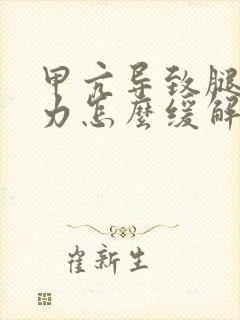 甲亢导致腿
力怎麼缓解
崔新生